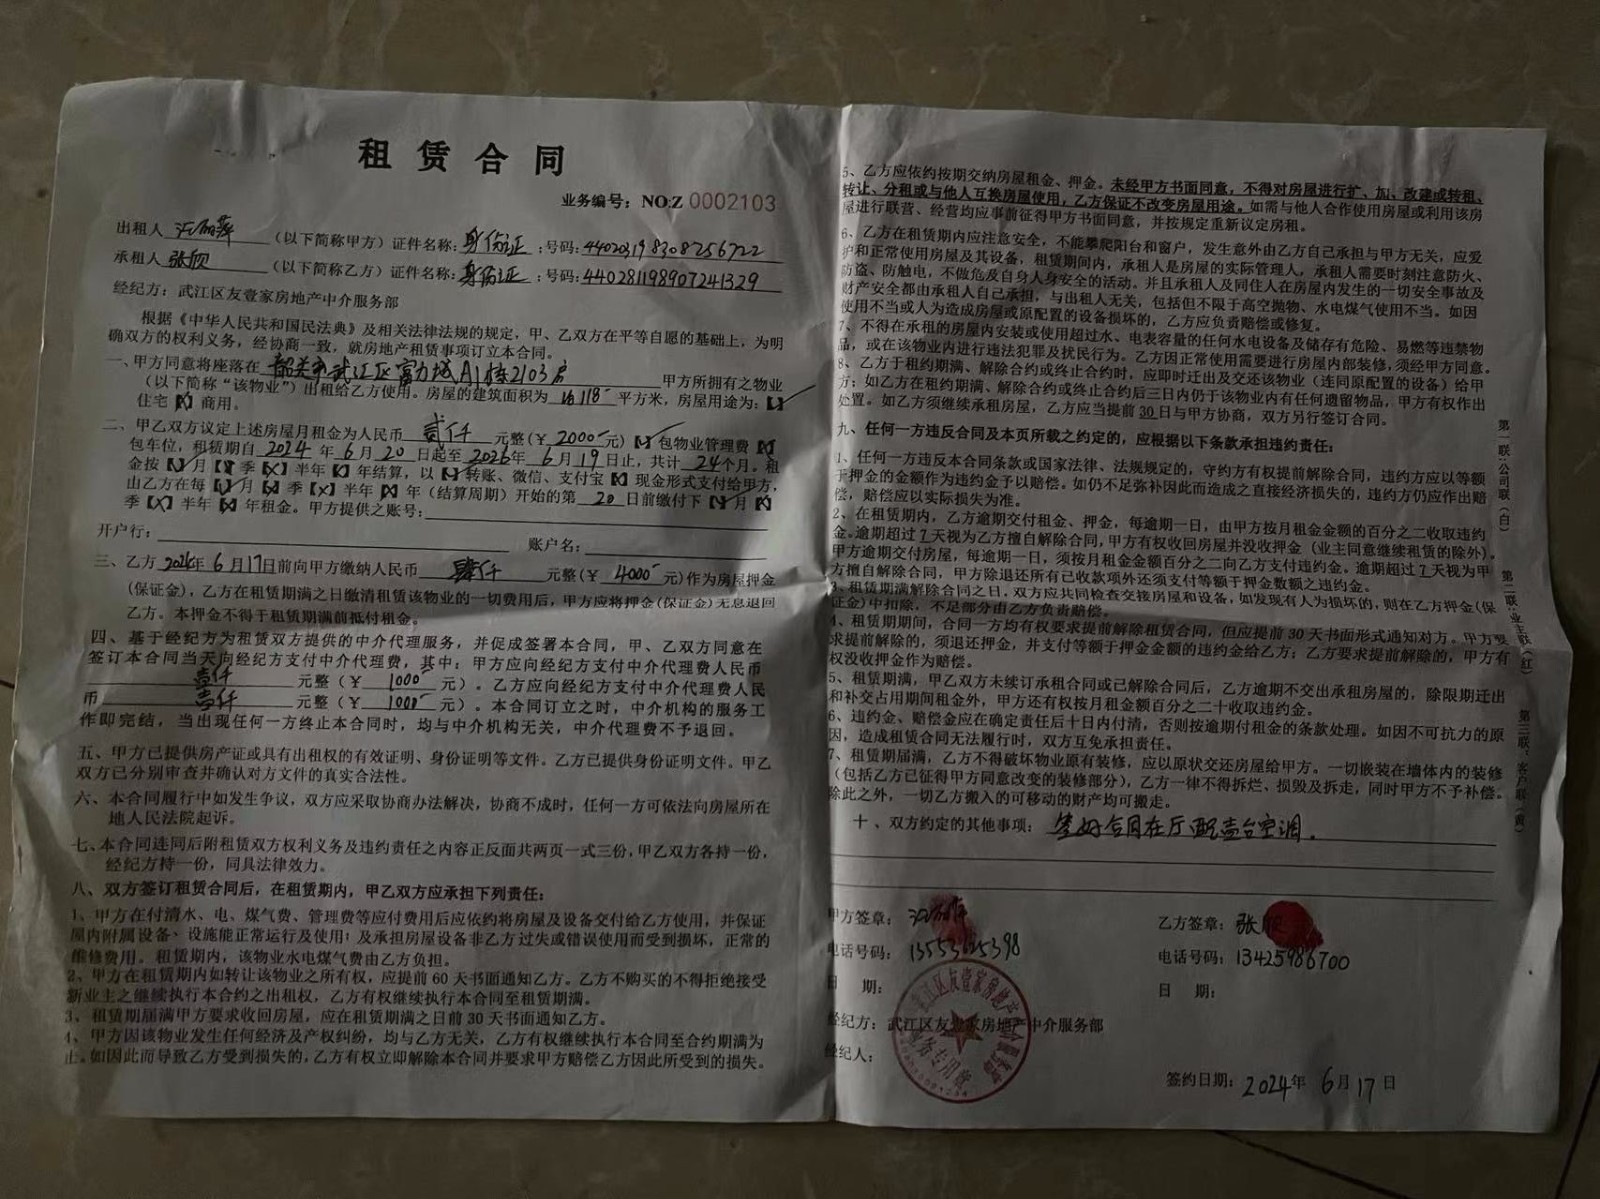 租赁合同
业务编号：NO:Z 0002103
出租人 （以下简称甲方）证件名称：身份证；号码：440203198308256722
承租人 张欣 （以下简称乙方）证件名称：身份证；号码：440281198907241329
经纪方：武江区友壹家房地产中介服务部
根据《中华人民共和国民法典》及相关法律法规的规定，甲、乙双方在平等自愿的基础上，为明
确双方的权利义务，经协商一致，就房地产租赁事项订立本合同。
一、甲方同意将座落在 韶关市武江区富力城A1栋2103房 甲方所拥有之物业
（以下简称“该物业”）出租给乙方使用。房屋的建筑面积为 118 平方米，房屋用途为：【✓】
住宅【X】商用。
二、甲乙双方议定上述房屋月租金为人民币 贰仟 元整（￥ 2000 元）【✓】包物业管理费【X】
包车位，租赁期自 2024 年 6 月 20 日起至 2026年 6 月 19 日止，共计 24 个月。租
金按【✓】月【X】季【X】半年【X】年结算，以【✓】转账、微信、支付宝【X】现金形式支付给甲方，
由乙方在每【✓】月【X】季【X】半年【X】年（结算周期）开始的第 20 日前缴付下【✓】月【X】
季【X】半年【X】年租金。甲方提供之账号：
开户行： 账户名：
三、乙方 2024年 6 月 17日前向甲方缴纳人民币 肆仟 元整（￥ 4000 元）作为房屋押金
（保证金），乙方在租赁期满之日缴清租赁该物业的一切费用后，甲方应将押金（保证金）无息退回
乙方。本押金不得于租赁期满前抵付租金。
四、基于经纪方为租赁双方提供的中介代理服务，并促成签署本合同，甲、乙双方同意在
签订本合同当天向经纪方支付中介代理费，其中：甲方应向经纪方支付中介代理费人民币
壹仟 元整（￥ 1000 元）。乙方应向经纪方支付中介代理费人民
币 壹仟 元整（￥ 1000 元）。本合同订立之时，中介机构的服务工
作即完结，当出现任何一方终止本合同时，均与中介机构无关，中介代理费不予退回。
五、甲方已提供房产证或具有出租权的有效证明、身份证明等文件。乙方已提供身份证明文件。甲乙
双方已分别审查并确认对方文件的真实合法性。
六、本合同履行中如发生争议，双方应采取协商办法解决，协商不成时，任何一方可依法向房屋所在
地人民法院起诉。
七、本合同连同后附租赁双方权利义务及违约责任之内容正反面共两页一式三份，甲乙双方各持一份，
经纪方持一份，同具法律效力。
八、双方签订租赁合同后，在租赁期内，甲乙双方应承担下列责任：
1、甲方在付清水、电、煤气费、管理费等应付费用后应依约将房屋及设备交付给乙方使用，并保证
屋内附属设备、设施能正常运行及使用；及承担房屋设备非乙方过失或错误使用而受到损坏，正常的
维修费用。租赁期内，该物业水电煤气费由乙方负担。
2、甲方在租赁期内如转让该物业之所有权，应提前60天书面通知乙方。乙方不购买的不得拒绝接受
新业主之继续执行本合约之出租权，乙方有权继续执行本合同至租赁期满。
3、租赁期届满甲方要求收回房屋，应在租赁期满之日前30天书面通知乙方。
4、甲方因该物业发生任何经济及产权纠纷，均与乙方无关，乙方有权继续执行本合同至合约期满为
止。如因此而导致乙方受到损失的，乙方有权立即解除本合同并要求甲方赔偿乙方因此所受到的损失。
5、乙方应依约按期交纳房屋租金、押金。未经甲方书面同意，不得对房屋进行扩、加、改建或转租、
转让、分租或与他人互换房屋使用，乙方保证不改变房屋用途。如需与他人合作使用房屋或利用该房
屋进行联营、经营均应事前征得甲方书面同意，并按规定重新议定房租。
6、乙方在租赁期内应注意安全，不能攀爬阳台和窗户，发生意外由乙方自己承担与甲方无关，应爱
护和正常使用房屋及其设备，租赁期间内，承租人是房屋的实际管理人，承租人需要时刻注意防火、
防盗、防触电，不做危及自身人身安全的活动。并且承租人及同住人在房屋内发生的一切安全事故及
财产安全都由承租人自己承担，与出租人无关，包括但不限于高空抛物、水电煤气使用不当。如因
使用不当或人为造成房屋或原配置的设备损坏的，乙方应负责赔偿或修复。
7、不得在承租的房屋内安装或使用超过水、电表容量的任何水电设备及储存有危险、易燃等违禁物
品，或在该物业内进行违法犯罪及扰民行为。乙方因正常使用需要进行房屋内部装修，须经甲方同意。
8、乙方于租约期满、解除合约或终止合约时，应即时迁出及交还该物业（连同原配置的设备）给甲
方；如乙方在租约期满、解除合约或终止合约后三日内仍于该物业内有任何遗留物品，甲方有权作出
处置。如乙方须继续承租房屋，乙方应当提前30日与甲方协商，双方另行签订合同。
九、任何一方违反合同及本页所载之约定的，应根据以下条款承担违约责任：
1、任何一方违反本合同条款或国家法律、法规规定的，守约方有权提前解除合同，违约方应以等额
于押金的金额作为违约金予以赔偿。如仍不足弥补因此而造成之直接经济损失的，违约方仍应作出赔
偿，赔偿应以实际损失为准。
2、在租赁期内，乙方逾期交付租金、押金，每逾期一日，由甲方按月租金金额的百分之二收取违约
金。逾期超过7天视为乙方擅自解除合同，甲方有权收回房屋并没收押金（业主同意继续租赁的除外）。
甲方逾期交付房屋，每逾期一日，须按月租金金额百分之二向乙方支付违约金。逾期超过7天视为甲
方擅自解除合同，甲方除退还所有已收款项外还须支付等额于押金数额之违约金。
3、租赁期满解除合同之日，双方应共同检查交接房屋和设备，如发现有人为损坏的，则在乙方押金（保
证金）中扣除，不足部分由乙方负责赔偿。
4、租赁期期间，合同一方均有权要求提前解除租赁合同，但应提前30天书面形式通知对方。甲方要
求提前解除的，须退还押金，并支付等额于押金金额的违约金给乙方；乙方要求提前解除的，甲方有
权没收押金作为赔偿。
5、租赁期满，甲乙双方未续订承租合同或已解除合同后，乙方逾期不交出承租房屋的，除限期迁出
和补交占用期间租金外，甲方还有权按月租金额百分之二十收取违约金。
6、违约金、赔偿金应在确定责任后十日内付清，否则按逾期付租金的条款处理。如因不可抗力的原
因，造成租赁合同无法履行时，双方互免承担责任。
7、租赁期届满，乙方不得破坏物业原有装修，应以原状交还房屋给甲方。一切嵌装在墙体内的装修
（包括乙方已征得甲方同意改变的装修部分），乙方一律不得拆烂、损毁及拆走，同时甲方不予补偿。
除此之外，一切乙方搬入的可移动的财产均可搬走。
十、双方约定的其他事项：签好合同在厅配壹台空调．
甲方签章： 乙方签章：张欣
电话号码：13553625398 电话号码：13425986700
日 期： 日 期：
经纪方：武江区友壹家房地产中介服务部
经纪人：
签约日期：2024年 6月17日
第一联：公司联（白） 第二联：业主联（红） 第三联：客户联（黄）
武江区友壹家房地产中介服务部
业务专用章